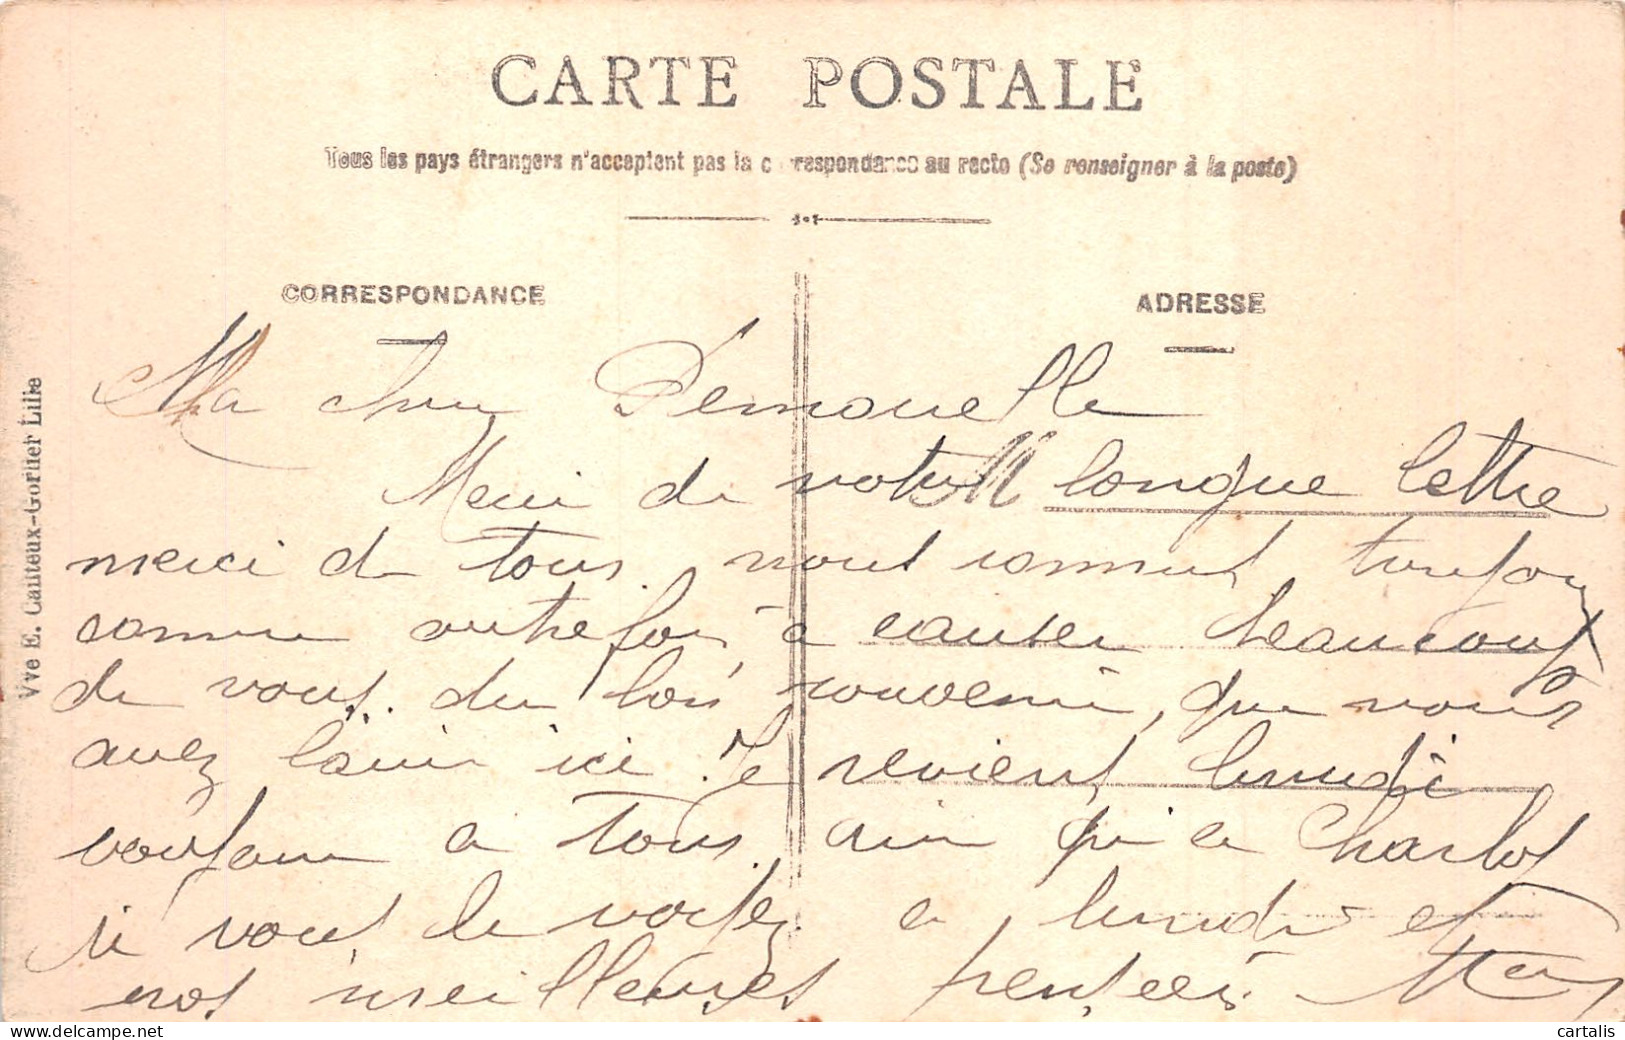 CARTE POSTALE
Tous les pays étrangers n'acceptent pas la correspondance au recto (Se renseigner à la poste)
CORRESPONDANCE
ADRESSE
Vve E. Cauteux-Gortier Lille
Ma cher Demouelle
Merci de votre longue lettre
merci de tous nous sommes toujour
comme autrefois à causer beaucoup
de vous. du bon souvenir, que vous
avez laissé ici. Je revient lundi
bonjour a tous. ainsi qu'a Charlot
si vous le voyez. a lundi et
nos meilleures pensées
cartalis